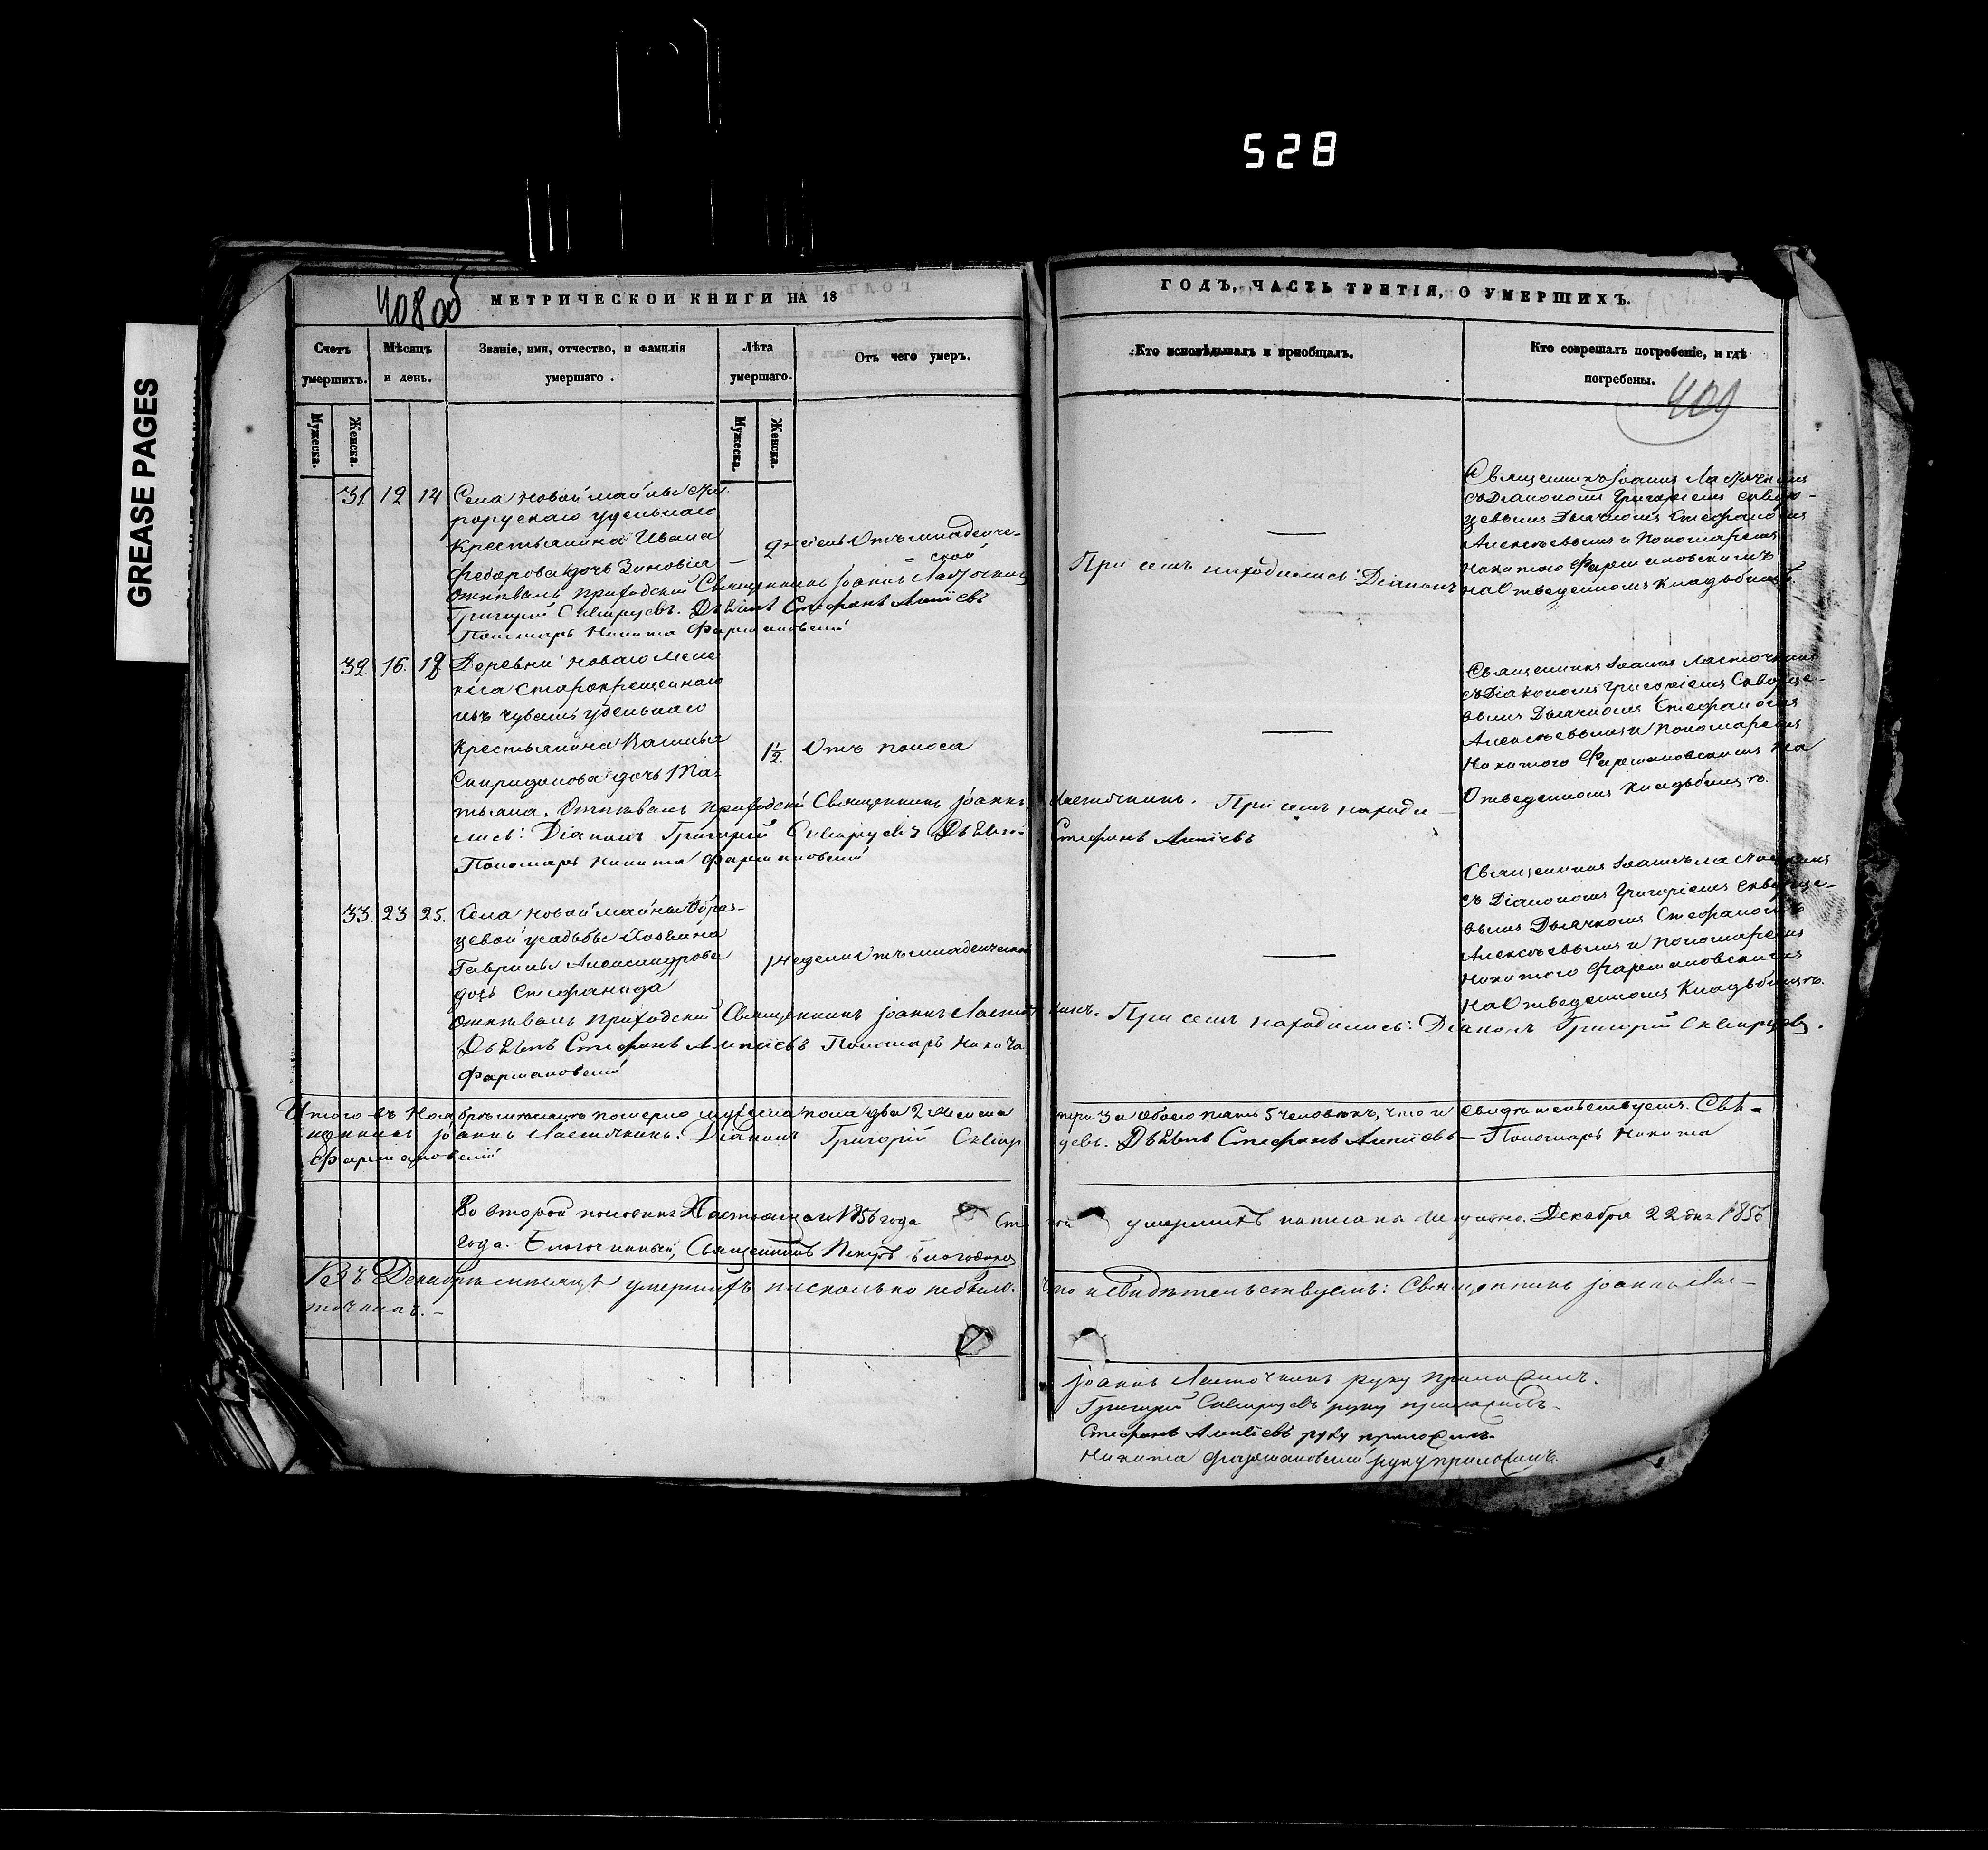 528
GREASE PAGES
408 об
МЕТРИЧЕСКОЙ КНИГИ НА 18
ГОДЪ, ЧАСТЬ ТРЕТІЯ, О УМЕРШИХЪ.
Счетъ умершихъ.
Мѣсяцъ и день.
Званіе, имя, отчество, и фамилія умершаго.
Лѣта умершаго.
Отъ чего умеръ.
Кто исповѣдывалъ и пріобщалъ.
Кто соврешалъ погребеніе, и гдѣ погребены.
409
Мужеска.
Женска.
Мужеска.
Женска.
31 12 14 Села новой майны
удѣльнаго
Крестьянина Ивана
Федорова дочь Зиновіа
Отпѣвалъ приходскій Священникъ Іоаннъ Ласточкинъ
Григорій Скворцовъ. Стефанъ
Пономарь Никита Фармаковскій
Отъ младенче-
ской
—
При семъ находились: Діаконъ
Священникъ Іоаннъ Ласточкинъ
съ Діакономъ Григоріемъ Скворцо-
вымъ Дьячкомъ Стефаномъ
Алексѣевымъ и Пономаремъ
Никитою Фармаковскимъ
на Отведенномъ Кладбищѣ.
32. 16. 18 Деревни новаго
Старокрещеннаго
изъ чувашъ удѣльнаго
Крестьянина Василья
Спиридонова дочь Та-
тьяна. Отпѣвалъ приходскій Священникъ Іоаннъ Ласточкинъ. При семъ находи-
лись: Діаконъ Григорій Скворцовъ Стефанъ
Пономарь Никита Фармаковскій
1½. Отъ поноса
—
Священникъ Іоаннъ Ласточкинъ
съ Діакономъ Григоріемъ Скворцо-
вымъ Дьячкомъ Стефаномъ
Алексѣевымъ и Пономаремъ
Никитою Фармаковскимъ на
Отведенномъ кладбищѣ.
33. 23 25. Села новой майны Образ-
цевой усадьбы
Гаврилы Александрова
дочь Стефанида
Отпѣвалъ приходскій Священникъ Іоаннъ Ласточкинъ. При семъ находились: Діаконъ Григорій Скворцовъ.
Стефанъ Пономарь Никита
Фармаковскій
1 недели Отъ младенческой
—
Священникъ Іоаннъ Ласточкинъ
съ Діакономъ Григоріемъ Скворцо-
вымъ Дьячкомъ Стефаномъ
Алексѣевымъ и Пономаремъ
Никитою Фармаковскимъ
на Отведенномъ Кладбищѣ.
Итого въ Ноябрѣ мѣсяцѣ померло мужеска пола два 2 женска три 3 и Обоего пять 5 человѣкъ, что и свидѣтельствуемъ. Свя-
щенникъ Іоаннъ Ласточкинъ. Діаконъ Григорій Скворцовъ. Стефанъ — Пономарь Никита
Фармаковскій
Во второй половинѣ Настоящаго 1856 года умершихъ написана исправно. Декабря 22 дня 1856
года. Благочинный, Священникъ Петръ
Въ Декабрѣ мѣсяцѣ умершихъ нисколько небыло. Что и свидѣтельствуемъ: Священникъ Іоаннъ Лас-
точкинъ. —
Іоаннъ Ласточкинъ руку приложилъ.
Григорій Скворцовъ руку приложилъ.
Стефанъ руку приложилъ.
Никита Фармаковскій руку приложилъ.